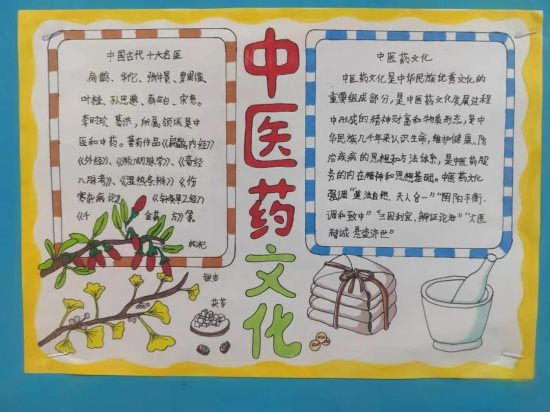 中医药文化
中国古代十大名医
扁鹊、华佗、张仲景、皇甫谧、
叶桂、孙思邈、薛生白、宋慈、
李时珍、葛洪，所属领域是中
医和中药。著有作品《扁鹊内经》
《外经》、《濒湖脉学》、《奇经
八脉考》、《湿热条辨》、《伤
寒杂病论》
《千 金 方》等。
枸杞
银杏
茯苓
中医药文化
中医药文化是中华民族优秀文化的
重要组成部分，是中医药文化发展过程
中形成的精神财富和物质形态，是中
华民族几千年来认识生命，维护健康、防
治疾病的思想和方法体系，是中医药服
务的内在精神和思想基础。中医药文化
强调“道法自然、天人合一”“阴阳平衡，
调和致中”“三因制宜、辩证论治”“大医
精诚 悬壶济世”